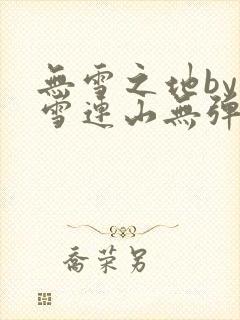 無雪之地by
雪連山無彈
喬荣另